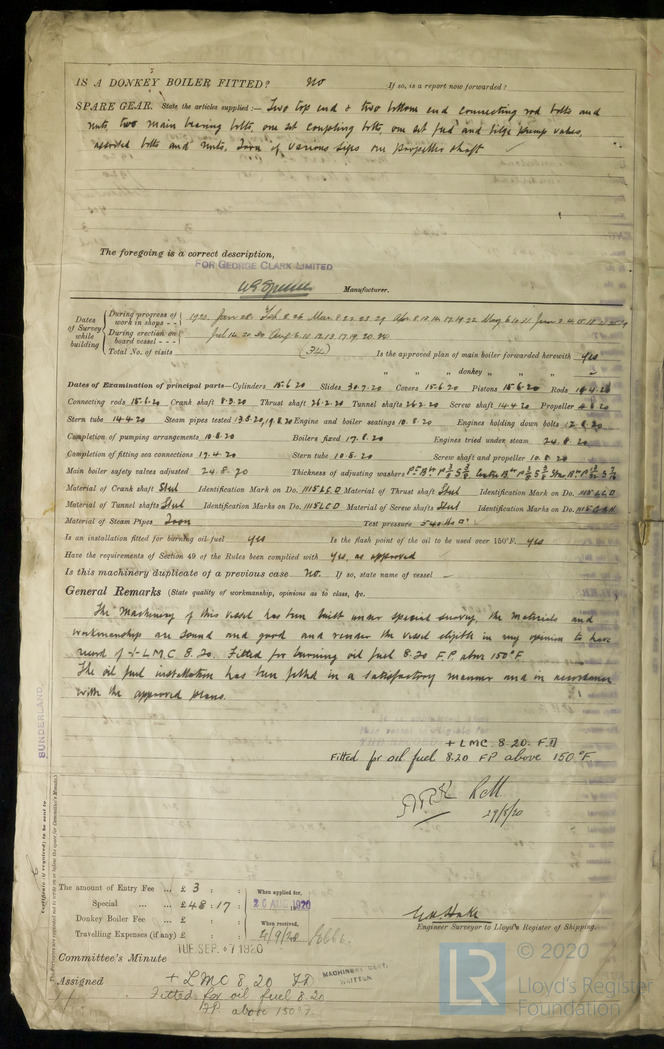 IS A DONKEY BOILER FITTED? No If so, is a report now forwarded?
SPARE GEAR. State the articles supplied:— Two top end & two bottom end connecting rod bolts and
nuts, two main bearing bolts, one set coupling bolts, one set feed and bilge pump valves,
assorted bolts and nuts, Iron of various sizes one propeller shaft
The foregoing is a correct description,
FOR GEORGE CLARK LIMITED
Manufacturer.
Dates of Survey while building
During progress of work in shops - - 1920. Jan 28. Feb 8. 26 Mar 8. 22. 23. 29 Apr 8. 10. 14. 17. 19. 22 May 6. 10. 21. June 2. 4. 15. 18.
During erection on board vessel - - - Jul 14. 20. 30 Aug 6. 10. 12. 13. 17. 19. 20. 24.
Total No. of visits (34) Is the approved plan of main boiler forwarded herewith yes
" " " donkey " " -
Dates of Examination of principal parts—Cylinders 15.6.20 Slides 30.7.20 Covers 15.6.20 Pistons 15.6.20 Rods 14.4.20
Connecting rods 15.6.20 Crank shaft 8.3.20 Thrust shaft 26.2.20 Tunnel shafts 26.2.20 Screw shaft 14.4.20 Propeller
Stern tube 14.4.20 Steam pipes tested 13.8.20, 19.8.20 Engine and boiler seatings 10.8.20 Engines holding down bolts 12.8.20
Completion of pumping arrangements 10.8.20 Boilers fixed 17.8.20 Engines tried under steam 24.8.20
Completion of fitting sea connections 19.4.20 Stern tube 10.8.20 Screw shaft and propeller 10.8.20
Main boiler safety valves adjusted 24.8.20 Thickness of adjusting washers
Material of Crank shaft Steel Identification Mark on Do. 1115 LCD Material of Thrust shaft Steel Identification Mark on Do. 1115 LCD
Material of Tunnel shafts Steel Identification Marks on Do. 1115 LCD Material of Screw shafts Steel Identification Marks on Do.
Material of Steam Pipes Iron Test pressure 540 lbs
Is an installation fitted for burning oil fuel yes Is the flash point of the oil to be used over 150°F. yes
Have the requirements of Section 49 of the Rules been complied with Yes, as approved
Is this machinery duplicate of a previous case No. If so, state name of vessel -
General Remarks (State quality of workmanship, opinions as to class, &c.
The Machinery of this vessel has been built under special survey, the materials and
workmanship are sound and good and render the vessel eligible in my opinion to have
record of + L M C 8.20. Fitted for burning oil fuel 8.20 F.P. above 150°F.
The oil fuel installation has been fitted in a satisfactory manner and in accordance
with the approved plans.
+ LMC 8.20. F.D
Fitted for oil fuel 8.20 FP above 150°F
29/8/20
SUNDERLAND
Certificate (if required) to be sent to
The amount of Entry Fee ... £ 3 : : When applied for,
Special ... ... £ 48 : 17 : 26 AUG 1920
Donkey Boiler Fee ... £ : : When received,
Travelling Expenses (if any) £ : : 4/9/20
Engineer Surveyor to Lloyd's Register of Shipping.
TUE. SEP. 7 1920
Committee's Minute
Assigned + LMC 8.20 FD
MACHINERY CERT. WRITTEN
Fitted for oil fuel 8.20
FP above 150°F
© 2020
LR
Lloyd's Register
Foundation